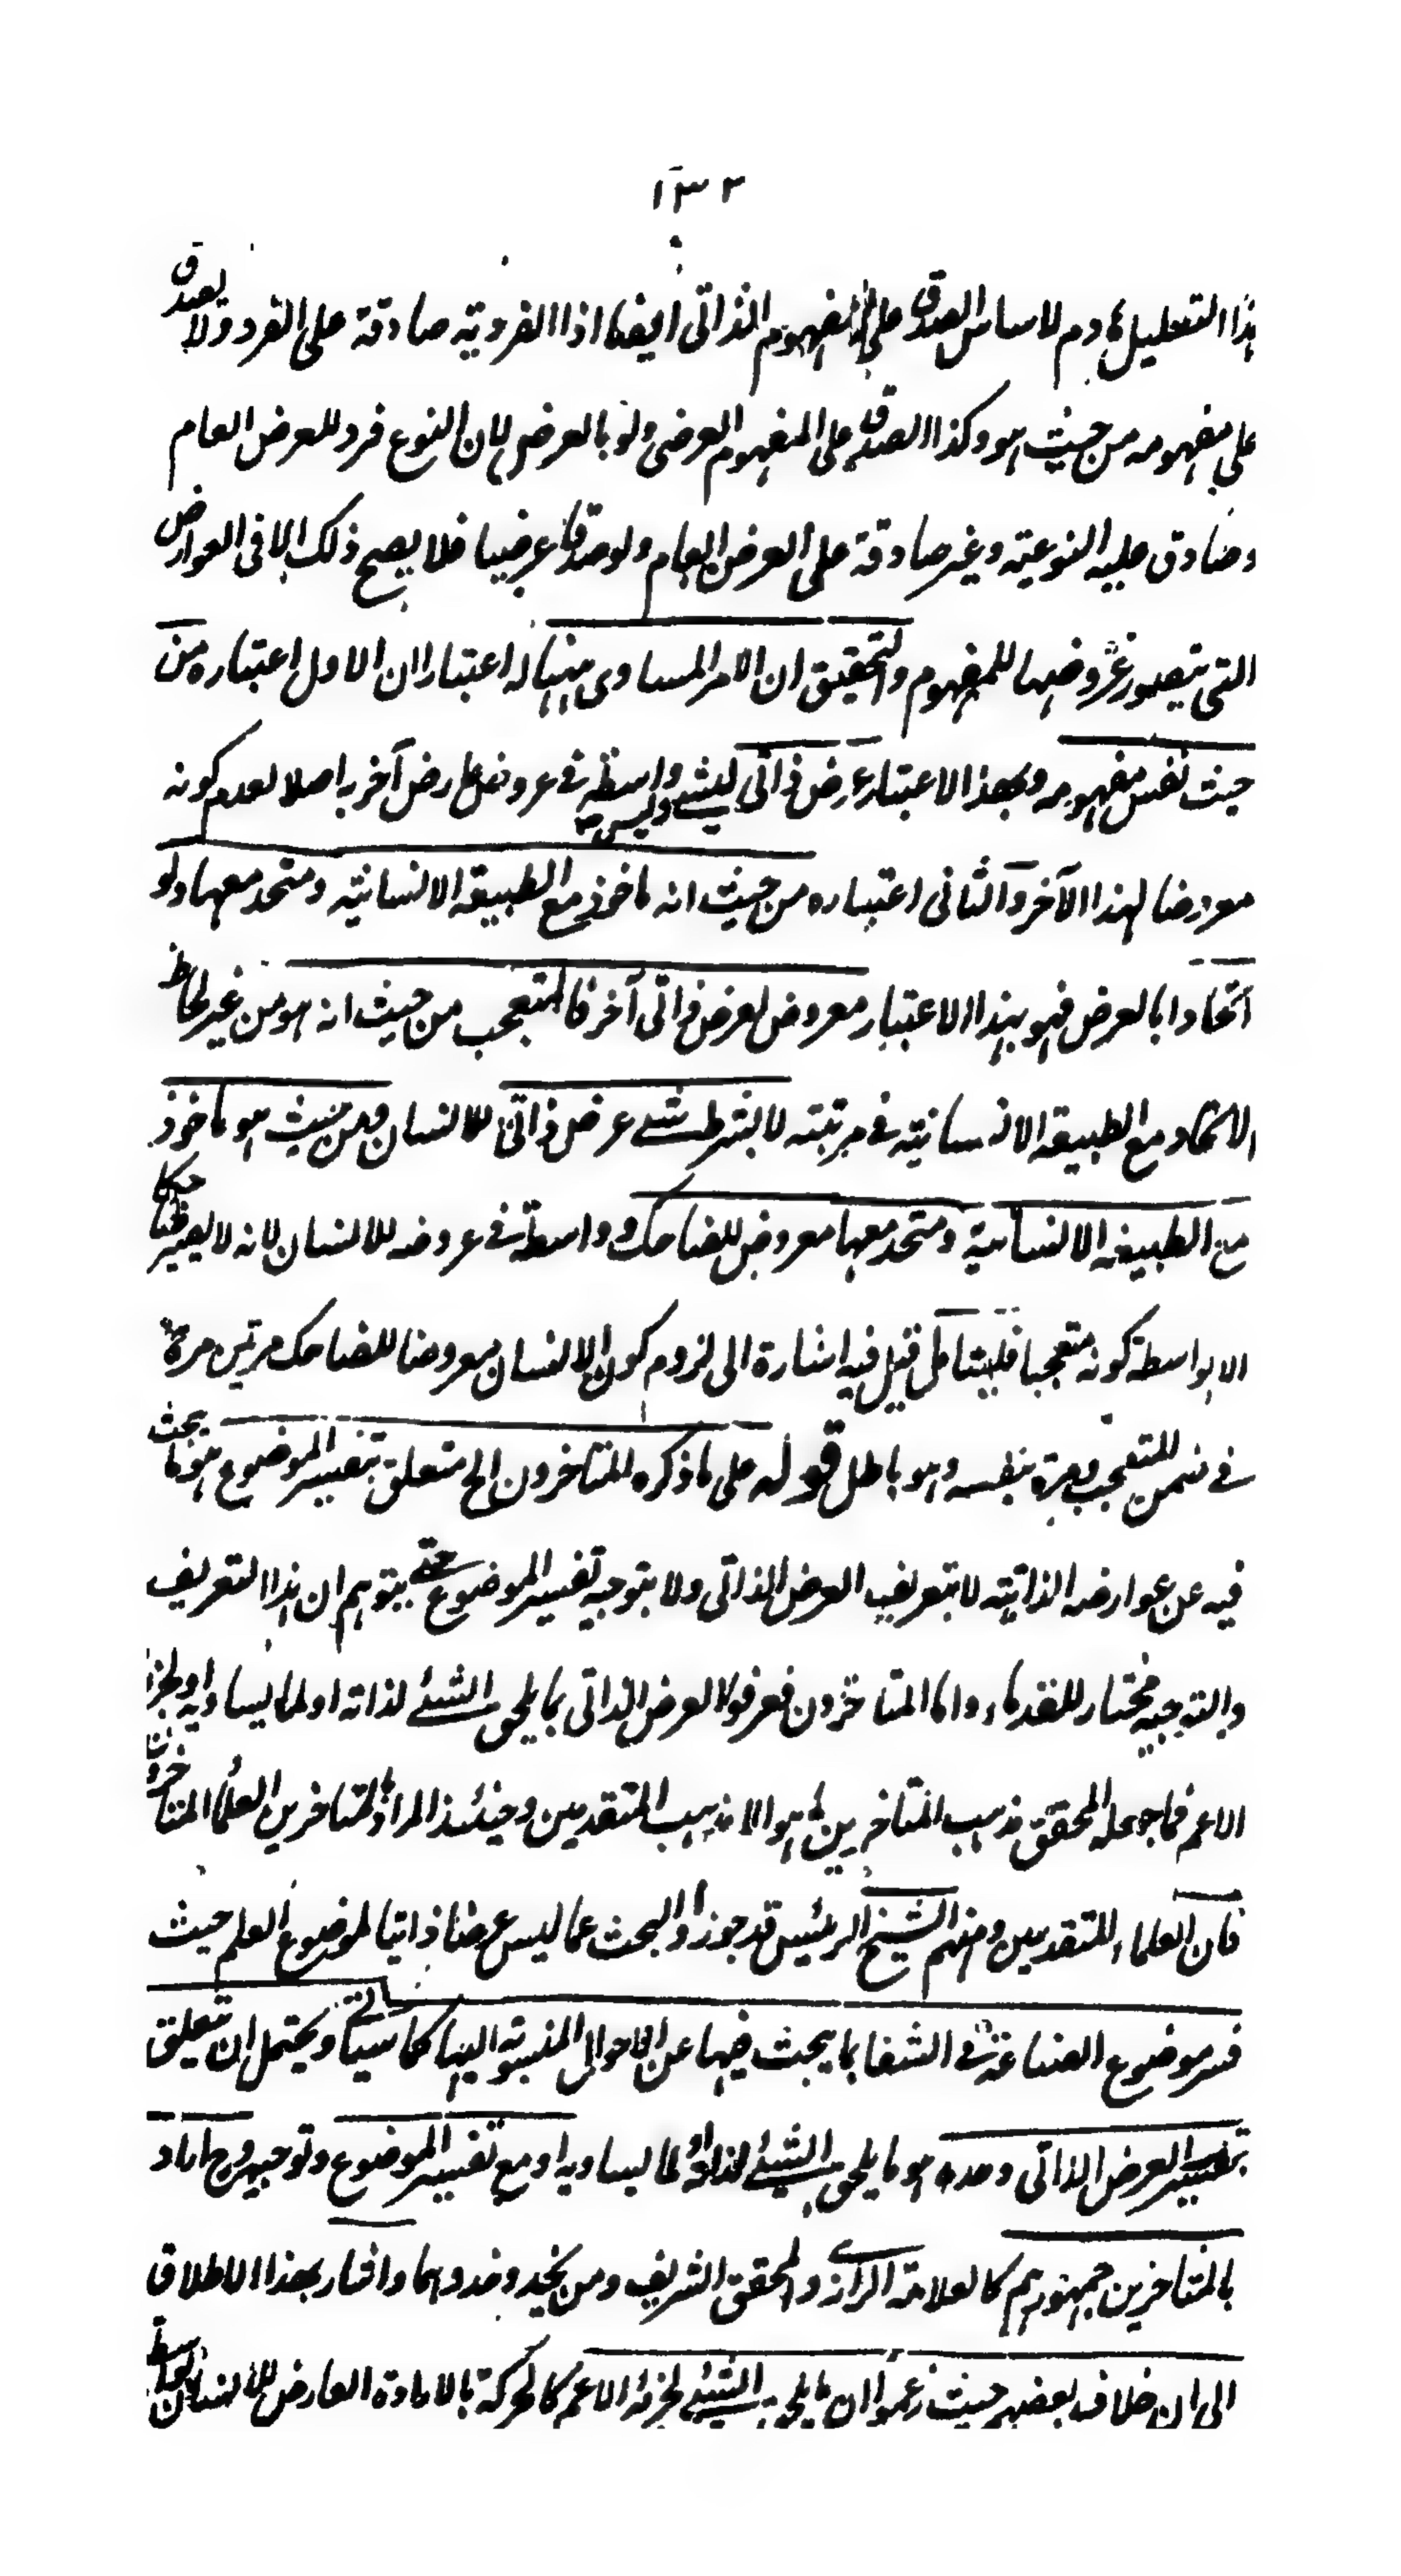 ١٣٢
هذا التعليل هادم لاساس الصدق على المفهوم الذاتى ايضا اذا الفردية صادقة على الفرد ولا يصدق
على مفهومه من حيث هو وكذا الصدق على المفهوم العرضى ولو بالعرض لان النوع فرد للعرض العام
وصادق عليه النوعية وغير صادقة على العرض العام ولو صدقا عرضيا فلا يصح ذلك الا فى العوارض
التى يتصور عروضها للمفهوم والتحقيق ان الامر المساوى ههنا له اعتباران الاول اعتباره من
حيث نفس مفهومه وبهذا الاعتبار عرض ذاتى لشئ وليس واسطة فى عروض عارض آخر به اصلا لعدم كونه
معروضا لهذا الآخر والثانى اعتباره من حيث انه ماخوذ مع الطبيعة الانسانية ومتحد معها ولو
اتحادا بالعرض فهو بهذا الاعتبار معروض لعرض ذاتى آخر فالمتعجب من حيث انه هو من غير لحاظ
الاتحاد مع الطبيعة الانسانية فى مرتبته لا بشرط شئ عرض ذاتى للانسان ومن حيث هو ماخوذ
مع الطبيعة الانسانية ومتحد معها معروض للضاحك وواسطة فى عروضه للانسان لانه لا يصير ضاحكا
الا بواسطة كونه متعجبا فليتامل قيل فيه اشارة الى لزوم كون الانسان معروضا للضاحك مرتين مرة
فى ضمن المتعجب ومرة بنفسه وهو باطل قوله على ما ذكره المتاخرون الخ متعلق بتفسير الموضوع هو ما يبحث
فيه عن عوارضه الذاتية لا بتعريف العرض الذاتى ولا بتوجيه تفسير الموضوع حتى يتوهم ان هذا التعريف
والتوجيه مختار للقدماء واما المتاخرون فعرفوا العرض الذاتى بما يلحق الشئ لذاته او لما يساويه او لجزئه
الاعم فما جعله المحقق مذهب المتاخرين ما هو الا مذهب المتقدمين وحينئذ المراد بالمتاخرين العلماء المتاخرون
فان العلماء المتقدمين ومنهم الشيخ الرئيس قد جوزوا البحث عما ليس عرضا ذاتيا لموضوع العلم حيث
فسر موضوع الصناعة فى الشفا بما يبحث فيها عن الاحوال المنسوبة اليها كما سياتى ويحتمل ان يتعلق
بتفسير العرض الذاتى وحده هو ما يلحق الشئ لذاته او لما يساويه او مع تفسير الموضوع وتوجيهه وح اراد
بالمتاخرين جمهورهم كالعلامة الرازى والمحقق الشريف ومن يحذو حذوهما واشار بهذا الاطلاق
الى ان خلاف بعضهم حيث زعموا ان ما يلحق الشئ لجزئه الاعم كالحركة بالارادة العارض للانسان بواسطة